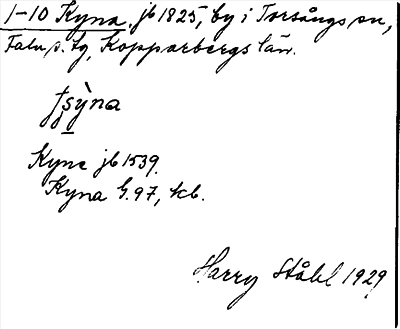 1-10 Kyna, jb 1825, by i Torsångs sn,
Falu s. lg, Kopparbergs län.
sỳna
Kyne jb 1539.
Kyna G.97, kb.
Harry Ståhl 1929